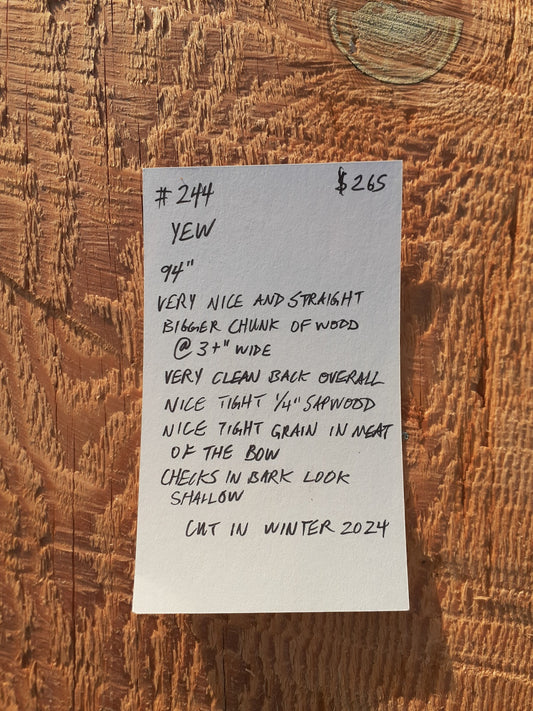 # 244 $265
YEW
94"
VERY NICE AND STRAIGHT
BIGGER CHUNK OF WOOD
@ 3+" WIDE
VERY CLEAN BACK OVERALL
NICE TIGHT 1/4" SAPWOOD
NICE TIGHT GRAIN IN MEAT
OF THE BOW
CHECKS IN BARK LOOK
SHALLOW
CUT IN WINTER 2024